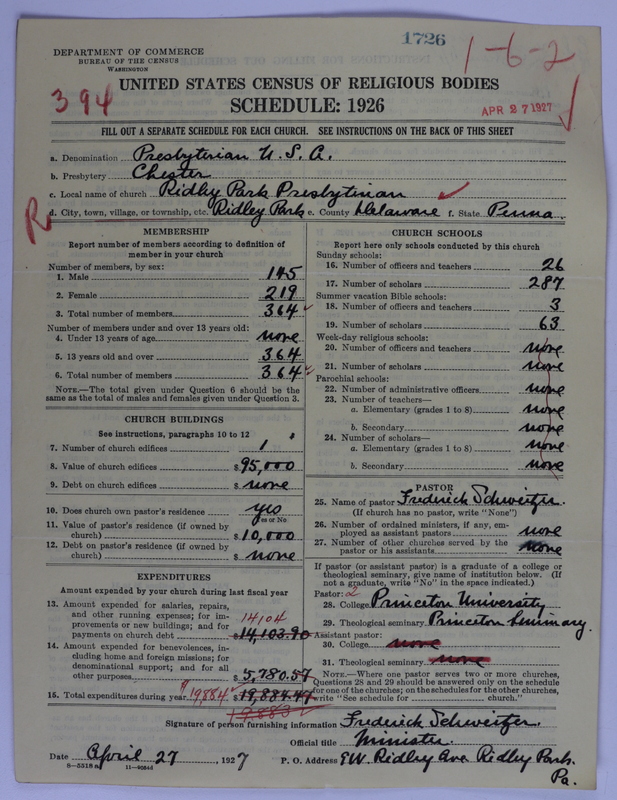 1726
1-6-2
DEPARTMENT OF COMMERCE
BUREAU OF THE CENSUS
WASHINGTON
394
UNITED STATES CENSUS OF RELIGIOUS BODIES
SCHEDULE: 1926
APR 27 1927
FILL OUT A SEPARATE SCHEDULE FOR EACH CHURCH. SEE INSTRUCTIONS ON THE BACK OF THIS SHEET
a. Denomination Presbyterian U.S.A.
b. Presbytery Chester
c. Local name of church Ridley Park Presbyterian
R
d. City, town, village, or township, etc. Ridley Park e. County Delaware f. State Penna.
MEMBERSHIP
Report number of members according to definition of
member in your church
Number of members, by sex:
1. Male 145
2. Female 219
3. Total number of members 364
Number of members under and over 13 years old:
4. Under 13 years of age none
5. 13 years old and over 364
6. Total number of members 364
NOTE.—The total given under Question 6 should be
same as the total of males and females given under Question 3.
CHURCH BUILDINGS
See instructions, paragraphs 10 to 12
7. Number of church edifices 1
8. Value of church edifices $95,000
9. Debt on church edifices $ none
10. Does church own pastor's residence yes
Yes or No
11. Value of pastor's residence (if owned by
church) $10,000
12. Debt on pastor's residence (if owned by
church) $ none
EXPENDITURES
Amount expended by your church during last fiscal year
13. Amount expended for salaries, repairs,
and other running expenses; for im-
provements or new buildings; and for
payments on church debt 14104 $14,103.90
14. Amount expended for benevolences, in-
cluding home and foreign missions; for
denominational support; and for all
other purposes $5,780.57
15. Total expenditures during year $19884 $19,884.47
19883
CHURCH SCHOOLS
Report here only schools conducted by this church
Sunday schools:
16. Number of officers and teachers 26
17. Number of scholars 287
Summer vacation Bible schools:
18. Number of officers and teachers 3
19. Number of scholars 63
Week-day religious schools:
20. Number of officers and teachers none
21. Number of scholars none
Parochial schools:
22. Number of administrative officers none
23. Number of teachers—
a. Elementary (grades 1 to 8) none
b. Secondary none
24. Number of scholars—
a. Elementary (grades 1 to 8) none
b. Secondary none
PASTOR
25. Name of pastor Frederick Schweitzer.
(If church has no pastor, write "None")
26. Number of ordained ministers, if any, em-
ployed as assistant pastors none
27. Number of other churches served by the
pastor or his assistants none
If pastor (or assistant pastor) is a graduate of a college or
theological seminary, give name of institution below. (If
not a graduate, write "No" in the space indicated.)
Pastor: 2
28. College Princeton University
29. Theological seminary Princeton Seminary.
Assistant pastor:
30. College none
31. Theological seminary none
NOTE.—Where one pastor serves two or more churches,
Questions 28 and 29 should be answered only on the schedule
for one of the churches; on the schedules for the other churches,
write "See schedule for church."
Signature of person furnishing information Frederick Schweitzer.
Official title Minister.
Date April 27, 1927 P. O. Address E W. Ridley Ave Ridley Park.
Pa.
8—5518a 11—9084